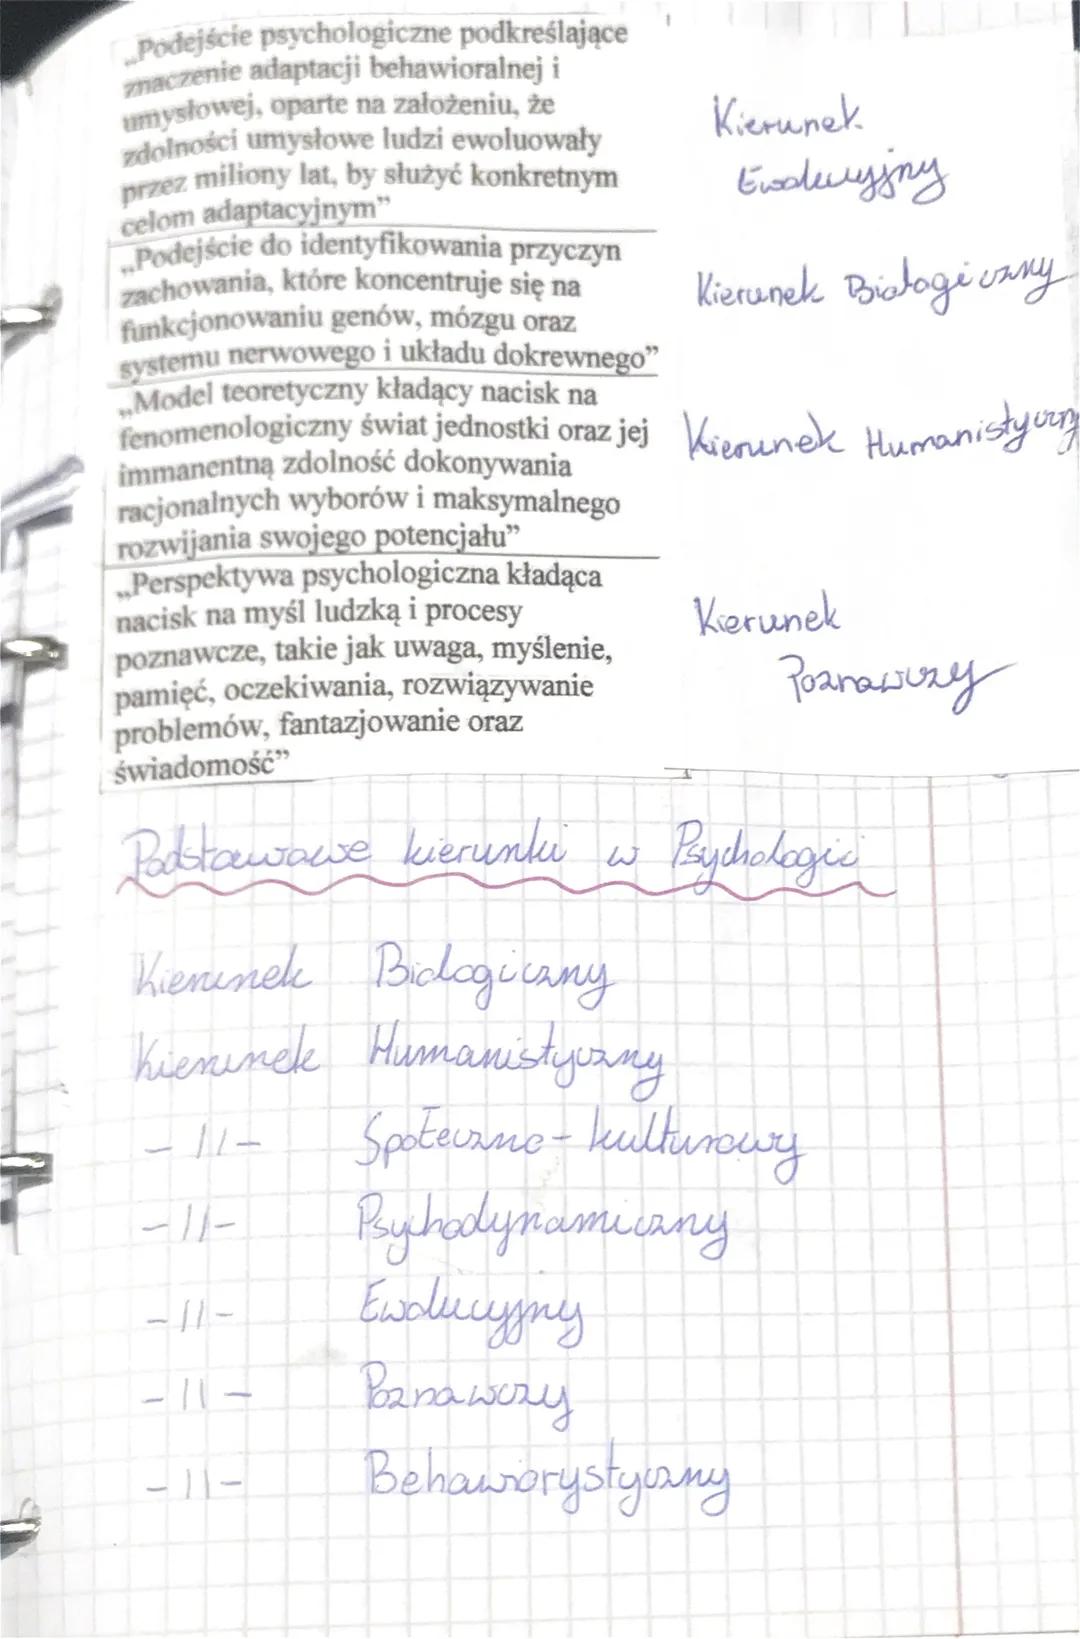 „Podejście psychologiczne podkreślające
znaczenie adaptacji behawioralnej i
umysłowej, oparte na założeniu, że
zdolności umysłowe ludzi ewoluowały
przez miliony lat, by służyć konkretnym
celom adaptacyjnym”
Kierunek
Ewolucyjny
„Podejście do identyfikowania przyczyn
zachowania, które koncentruje się na
funkcjonowaniu genów, mózgu oraz
systemu nerwowego i układu dokrewnego”
Kierunek Biologiczny
„Model teoretyczny kładący nacisk na
fenomenologiczny świat jednostki oraz jej
immanentną zdolność dokonywania
racjonalnych wyborów i maksymalnego
rozwijania swojego potencjału”
Kierunek Humanistyczny
„Perspektywa psychologiczna kładąca
nacisk na myśl ludzką i procesy
poznawcze, takie jak uwaga, myślenie,
pamięć, oczekiwania, rozwiązywanie
problemów, fantazjowanie oraz
świadomość”
Kierunek
Poznawczy
Podstawowe kierunki w Psychologii
Kierunek Biologiczny
Kierunek Humanistyczny
-11- Społeczno-kulturowy
-11- Psychodynamiczny
-11- Ewolucyjny
-11- Poznawczy
-11- Behawiorystyczny